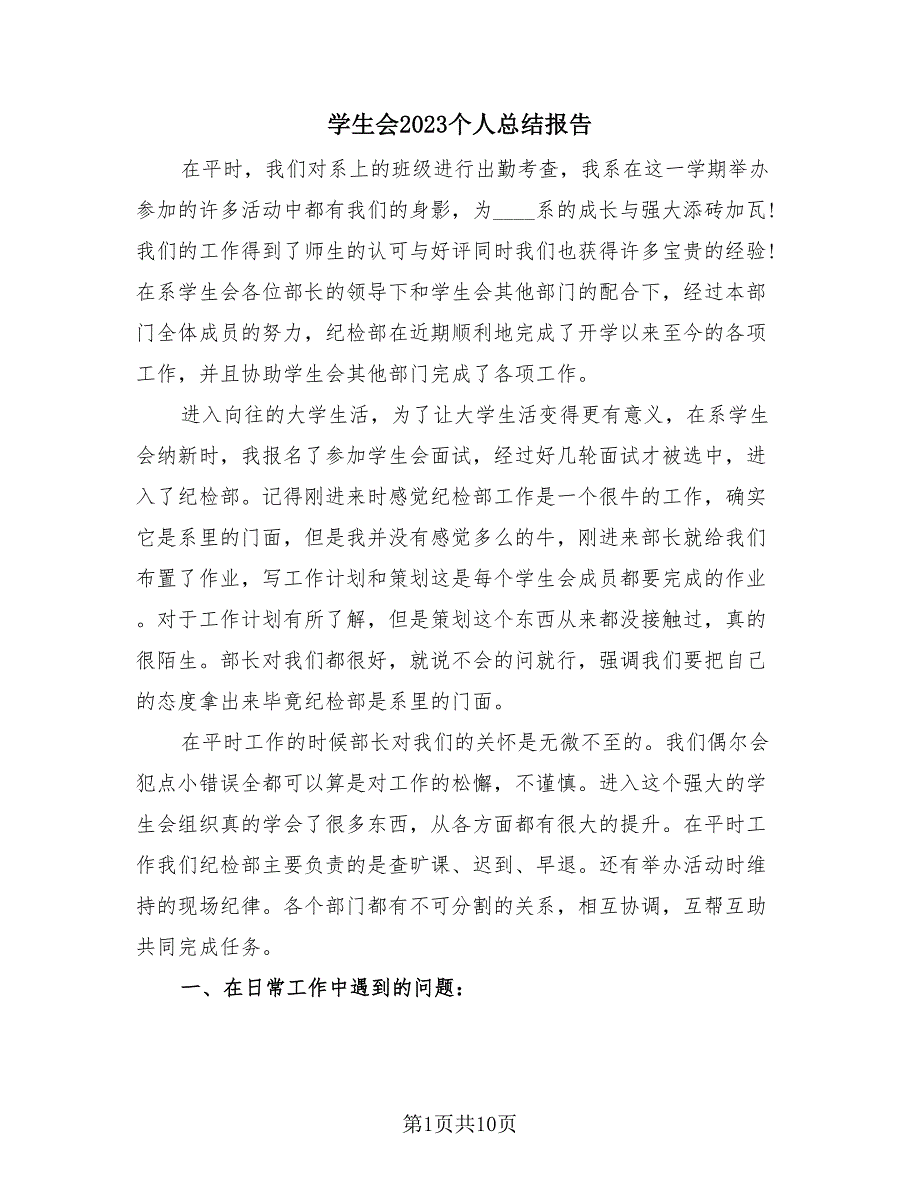 学生会2023个人总结报告
在平时，我们对系上的班级进行出勤考查，我系在这一学期举办
参加的许多活动中都有我们的身影，为____系的成长与强大添砖加瓦!
我们的工作得到了师生的认可与好评同时我们也获得许多宝贵的经验!
在系学生会各位部长的领导下和学生会其他部门的配合下，经过本部
门全体成员的努力，纪检部在近期顺利地完成了开学以来至今的各项
工作，并且协助学生会其他部门完成了各项工作。
进入向往的大学生活，为了让大学生活变得更有意义，在系学生
会纳新时，我报名了参加学生会面试，经过好几轮面试才被选中，进
入了纪检部。记得刚进来时感觉纪检部工作是一个很牛的工作，确实
它是系里的门面，但是我并没有感觉多么的牛，刚进来部长就给我们
布置了作业，写工作计划和策划这是每个学生会成员都要完成的作业
。对于工作计划有所了解，但是策划这个东西从来都没接触过，真的
很陌生。部长对我们都很好，就说不会的问就行，强调我们要把自己
的态度拿出来毕竟纪检部是系里的门面。
在平时工作的时候部长对我们的关怀是无微不至的。我们偶尔会
犯点小错误全都可以算是对工作的松懈，不谨慎。进入这个强大的学
生会组织真的学会了很多东西，从各方面都有很大的提升。在平时工
作我们纪检部主要负责的是查旷课、迟到、早退。还有举办活动时维
持的现场纪律。各个部门都有不可分割的关系，相互协调，互帮互助
共同完成任务。
一、在日常工作中遇到的问题：
第1页共10页